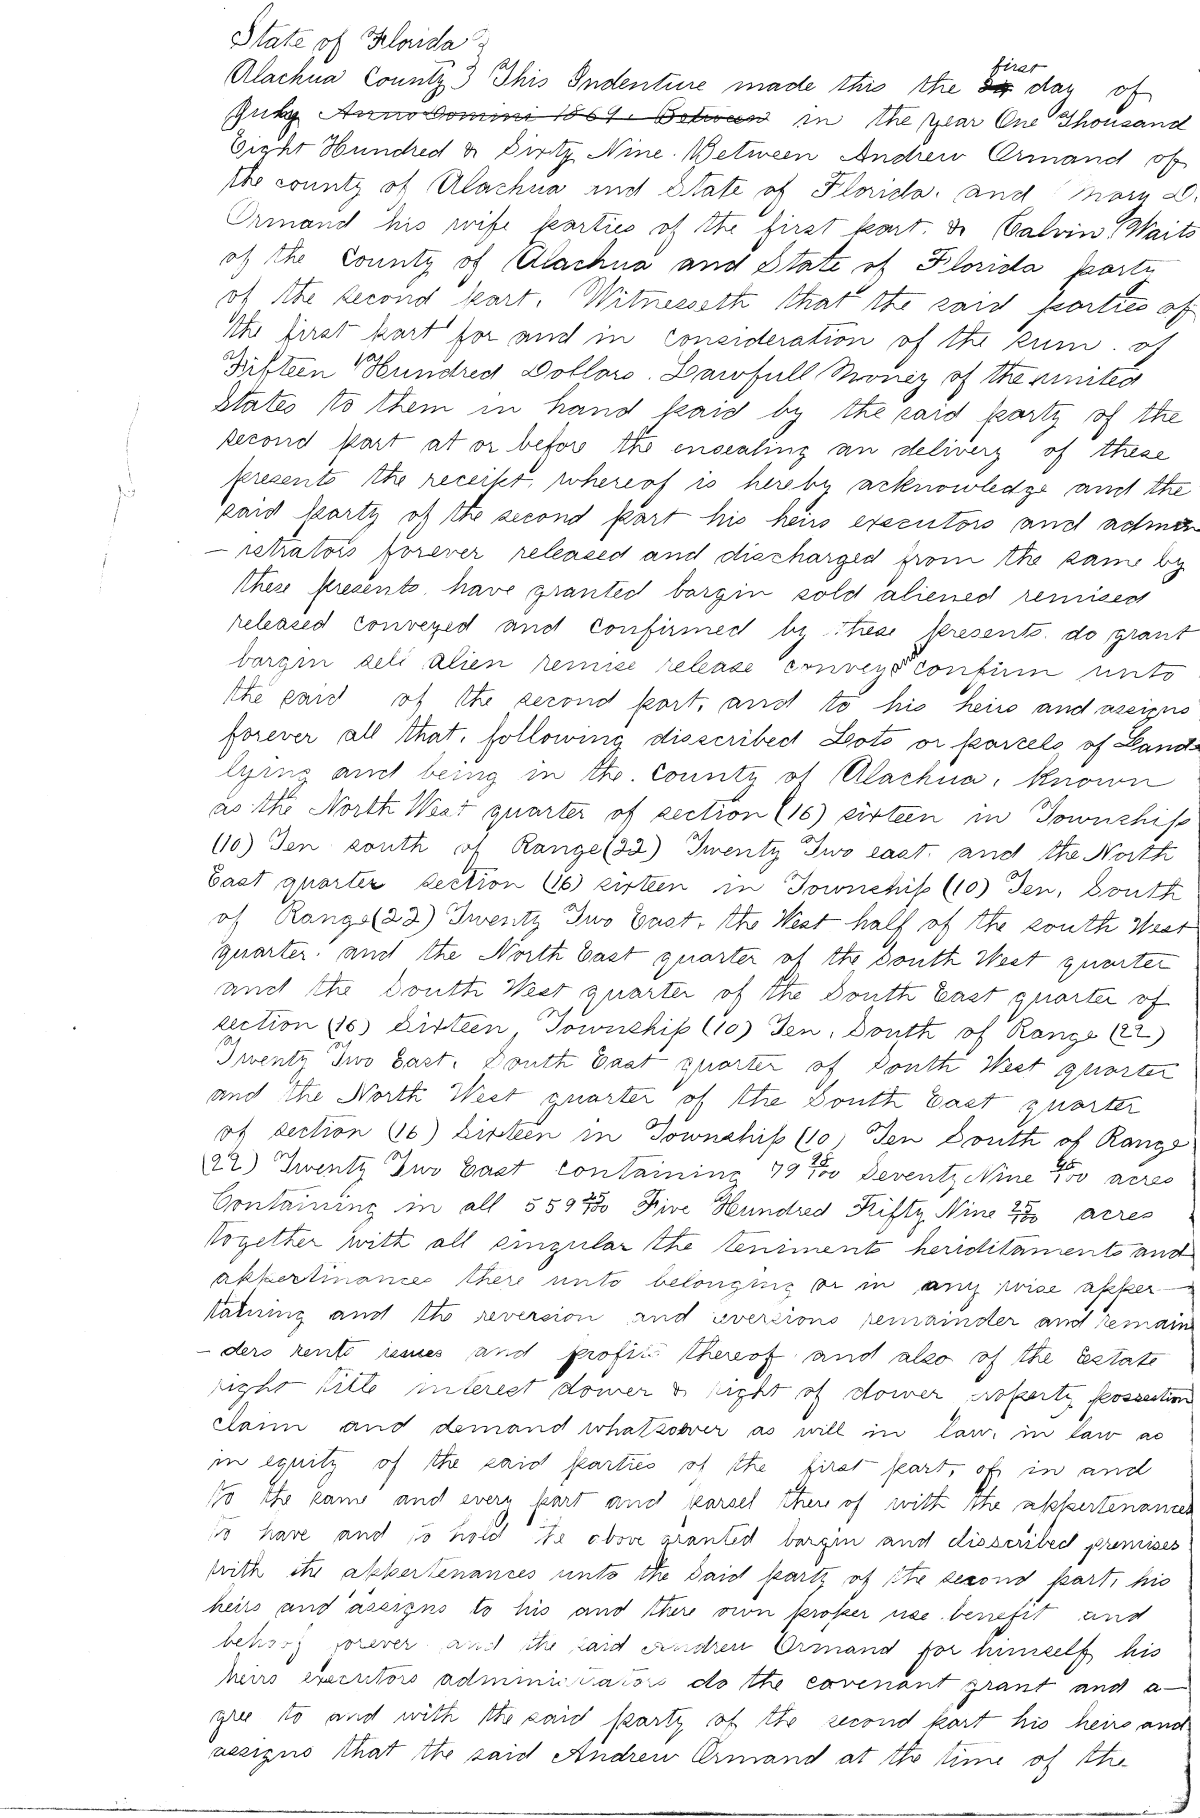 State of Florida }
Alachua County } This Indenture made this the first day of
July Anno Domini 1869. Between in the year One Thousand
Eight Hundred & Sixty Nine. Between Andrew Ormand of
the county of Alachua and State of Florida. and Mary D.
Ormand his wife parties of the first part. & Calvin Waits
of the County of Alachua and State of Florida party
of the second part. Witnesseth that the said parties of
the first part for and in consideration of the sum. of
Fifteen Hundred Dollars. Lawfull Money of the united
States to them in hand paid by the said party of the
second part at or before the ensealing an delivery of these
presents the receipt, whereof is hereby acknowledge and the
said party of the second part his heirs executors and admin
- istrators forever released and discharged from the same by
these presents. have granted bargin sold aliened remised
released conveyed and confirmed by these presents. do grant
bargin sell alien remise release convey and confirm unto
the said of the second part, and to his heirs and assigns
forever all that, following disscribed Lots or parcels of Land
lying and being in the. County of Alachua, known
as the North West quarter of section (16) sixteen in Township
(10) Ten south of Range (22) Twenty Two east. and the North
East quarter section (16) sixteen in Township (10) Ten, South
of Range (22) Twenty Two East. the West half of the south West
quarter. and the North East quarter of the South West quarter
and the South West quarter of the South East quarter of
section (16) Sixteen, Township (10) Ten. South of Range (22)
Twenty Two East. South East quarter of South West quarter
and the North West quarter of the South East quarter
of section (16) Sixteen in Township (10) Ten South of Range
(22) Twenty Two East containing 79 98/100 Seventy Nine 98/100 acres
Containing in all 559 25/100 Five Hundred Fifty Nine 25/100 acres
together with all singular the teniments heriditaments and
appertinances there unto belonging or in any wise apper-
taining and the reversion and reversions remainder and remain
- ders rents issues and profits thereof and also of the Estate
right title interest dower & right of dower property possession
claim and demand whatsoever as will in law, in law as
in equity of the said parties of the first part, of in and
to the same and every part and parsel there of with the appertenances
to have and to hold the above granted bargin and disscribed premises
with the appertenances unto the Said party of the second part, his
heirs and assigns to his and there own proper use benefit and
behoof forever and the said Andrew Ormand for himself his
heirs executors administrators do the covenant grant and a-
gree to and with the said party of the second part his heirs and
assigns that the said Andrew Ormand at the time of the